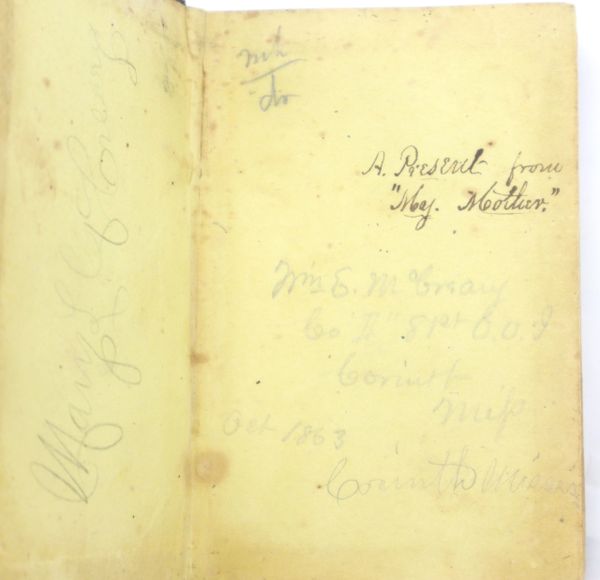 Mary L McCreary
A. Present from
"My. Mother."
Wm E. McCreary
Co 81st O.V.I
Corinth
Miss
Oct 1863
Corinth Miss